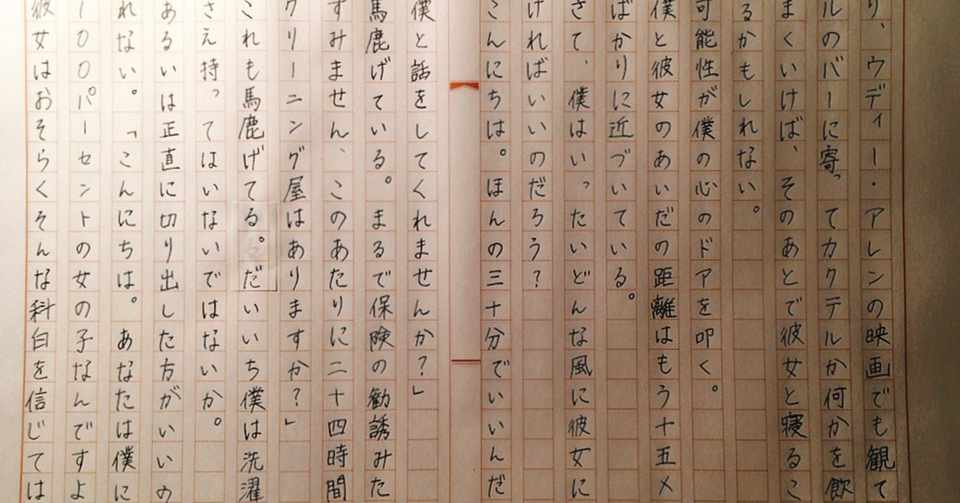 り、ウディー・アレンの映画でも観て
ルのバーに寄ってカクテルか何かを飲
まくいけば、そのあとで彼女と寝るこ
るかもしれない。
可能性が僕の心のドアを叩く。
僕と彼女のあいだの距離はもう十五メ
ばかりに近づいている。
さて、僕はいったいどんな風に彼女に
ければいいのだろう?
こんにちは。ほんの三十分でいいんだ
僕と話をしてくれませんか?」
馬鹿げている。まるで保険の勧誘みた
すみません、このあたりに二十四時間
クリーニング屋はありますか?」
これも馬鹿げてる。だいいち僕は洗濯
さえ持ってはいないではないか。
あるいは正直に切り出した方がいいの
れない。「こんにちは。あなたは僕に
100パーセントの女の子なんですよ
彼女はおそらくそんな科白を信じては